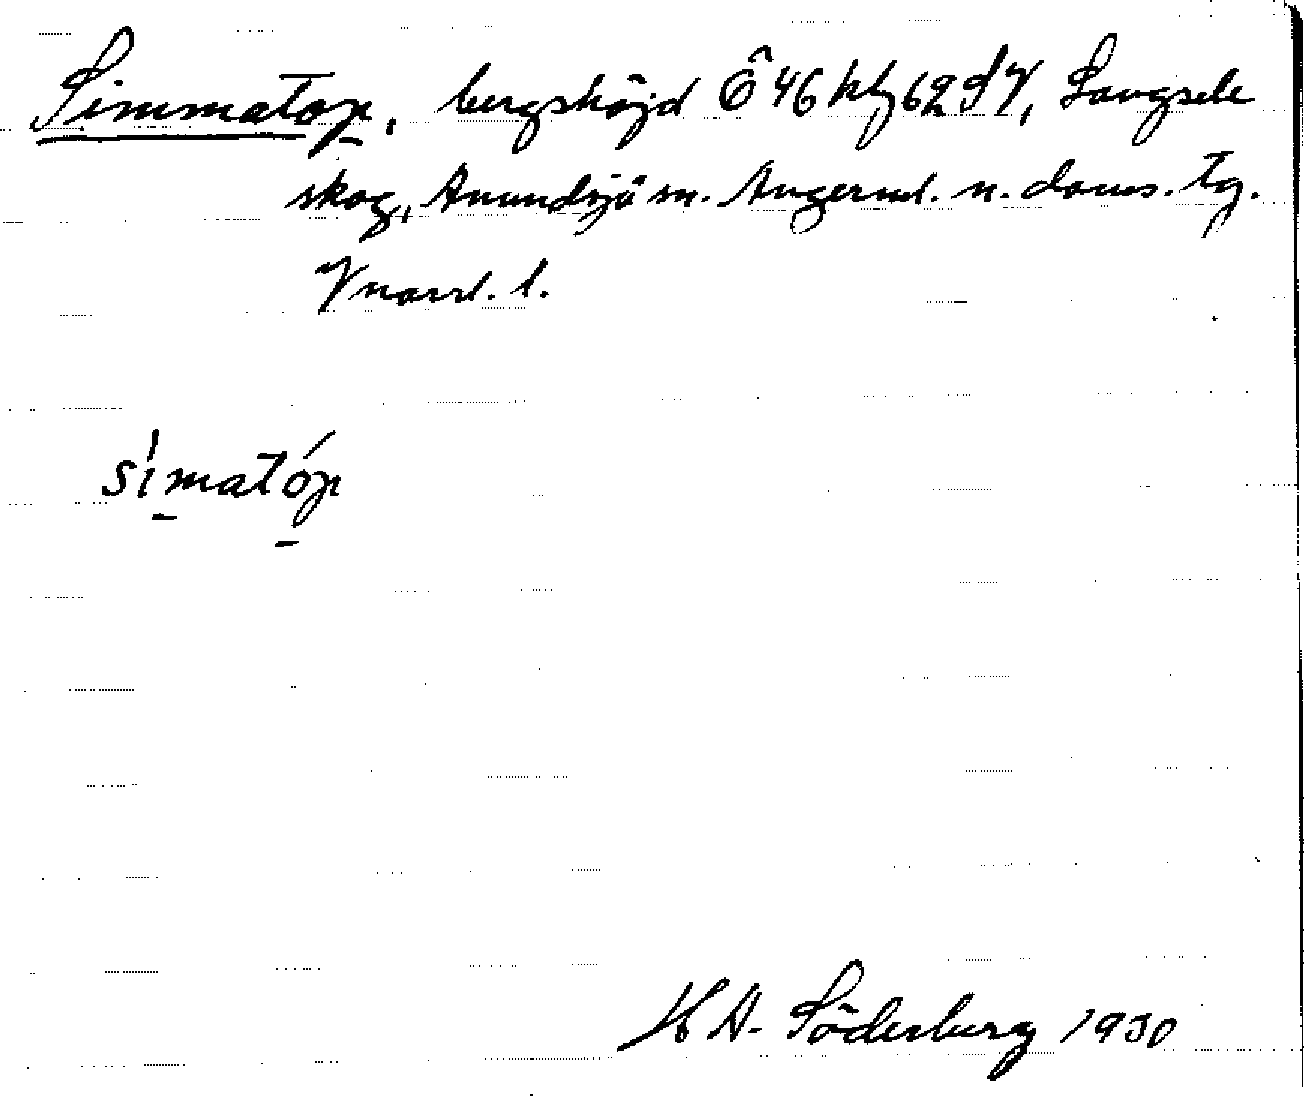 Simmatop, bergshöjd Ö 46 kbl 62 SV, Långsele
skog, Anundsjö sn. Ångerml. n. doms. tg.
Vnorrl. l.
símatóp
H A. Söderberg 1930